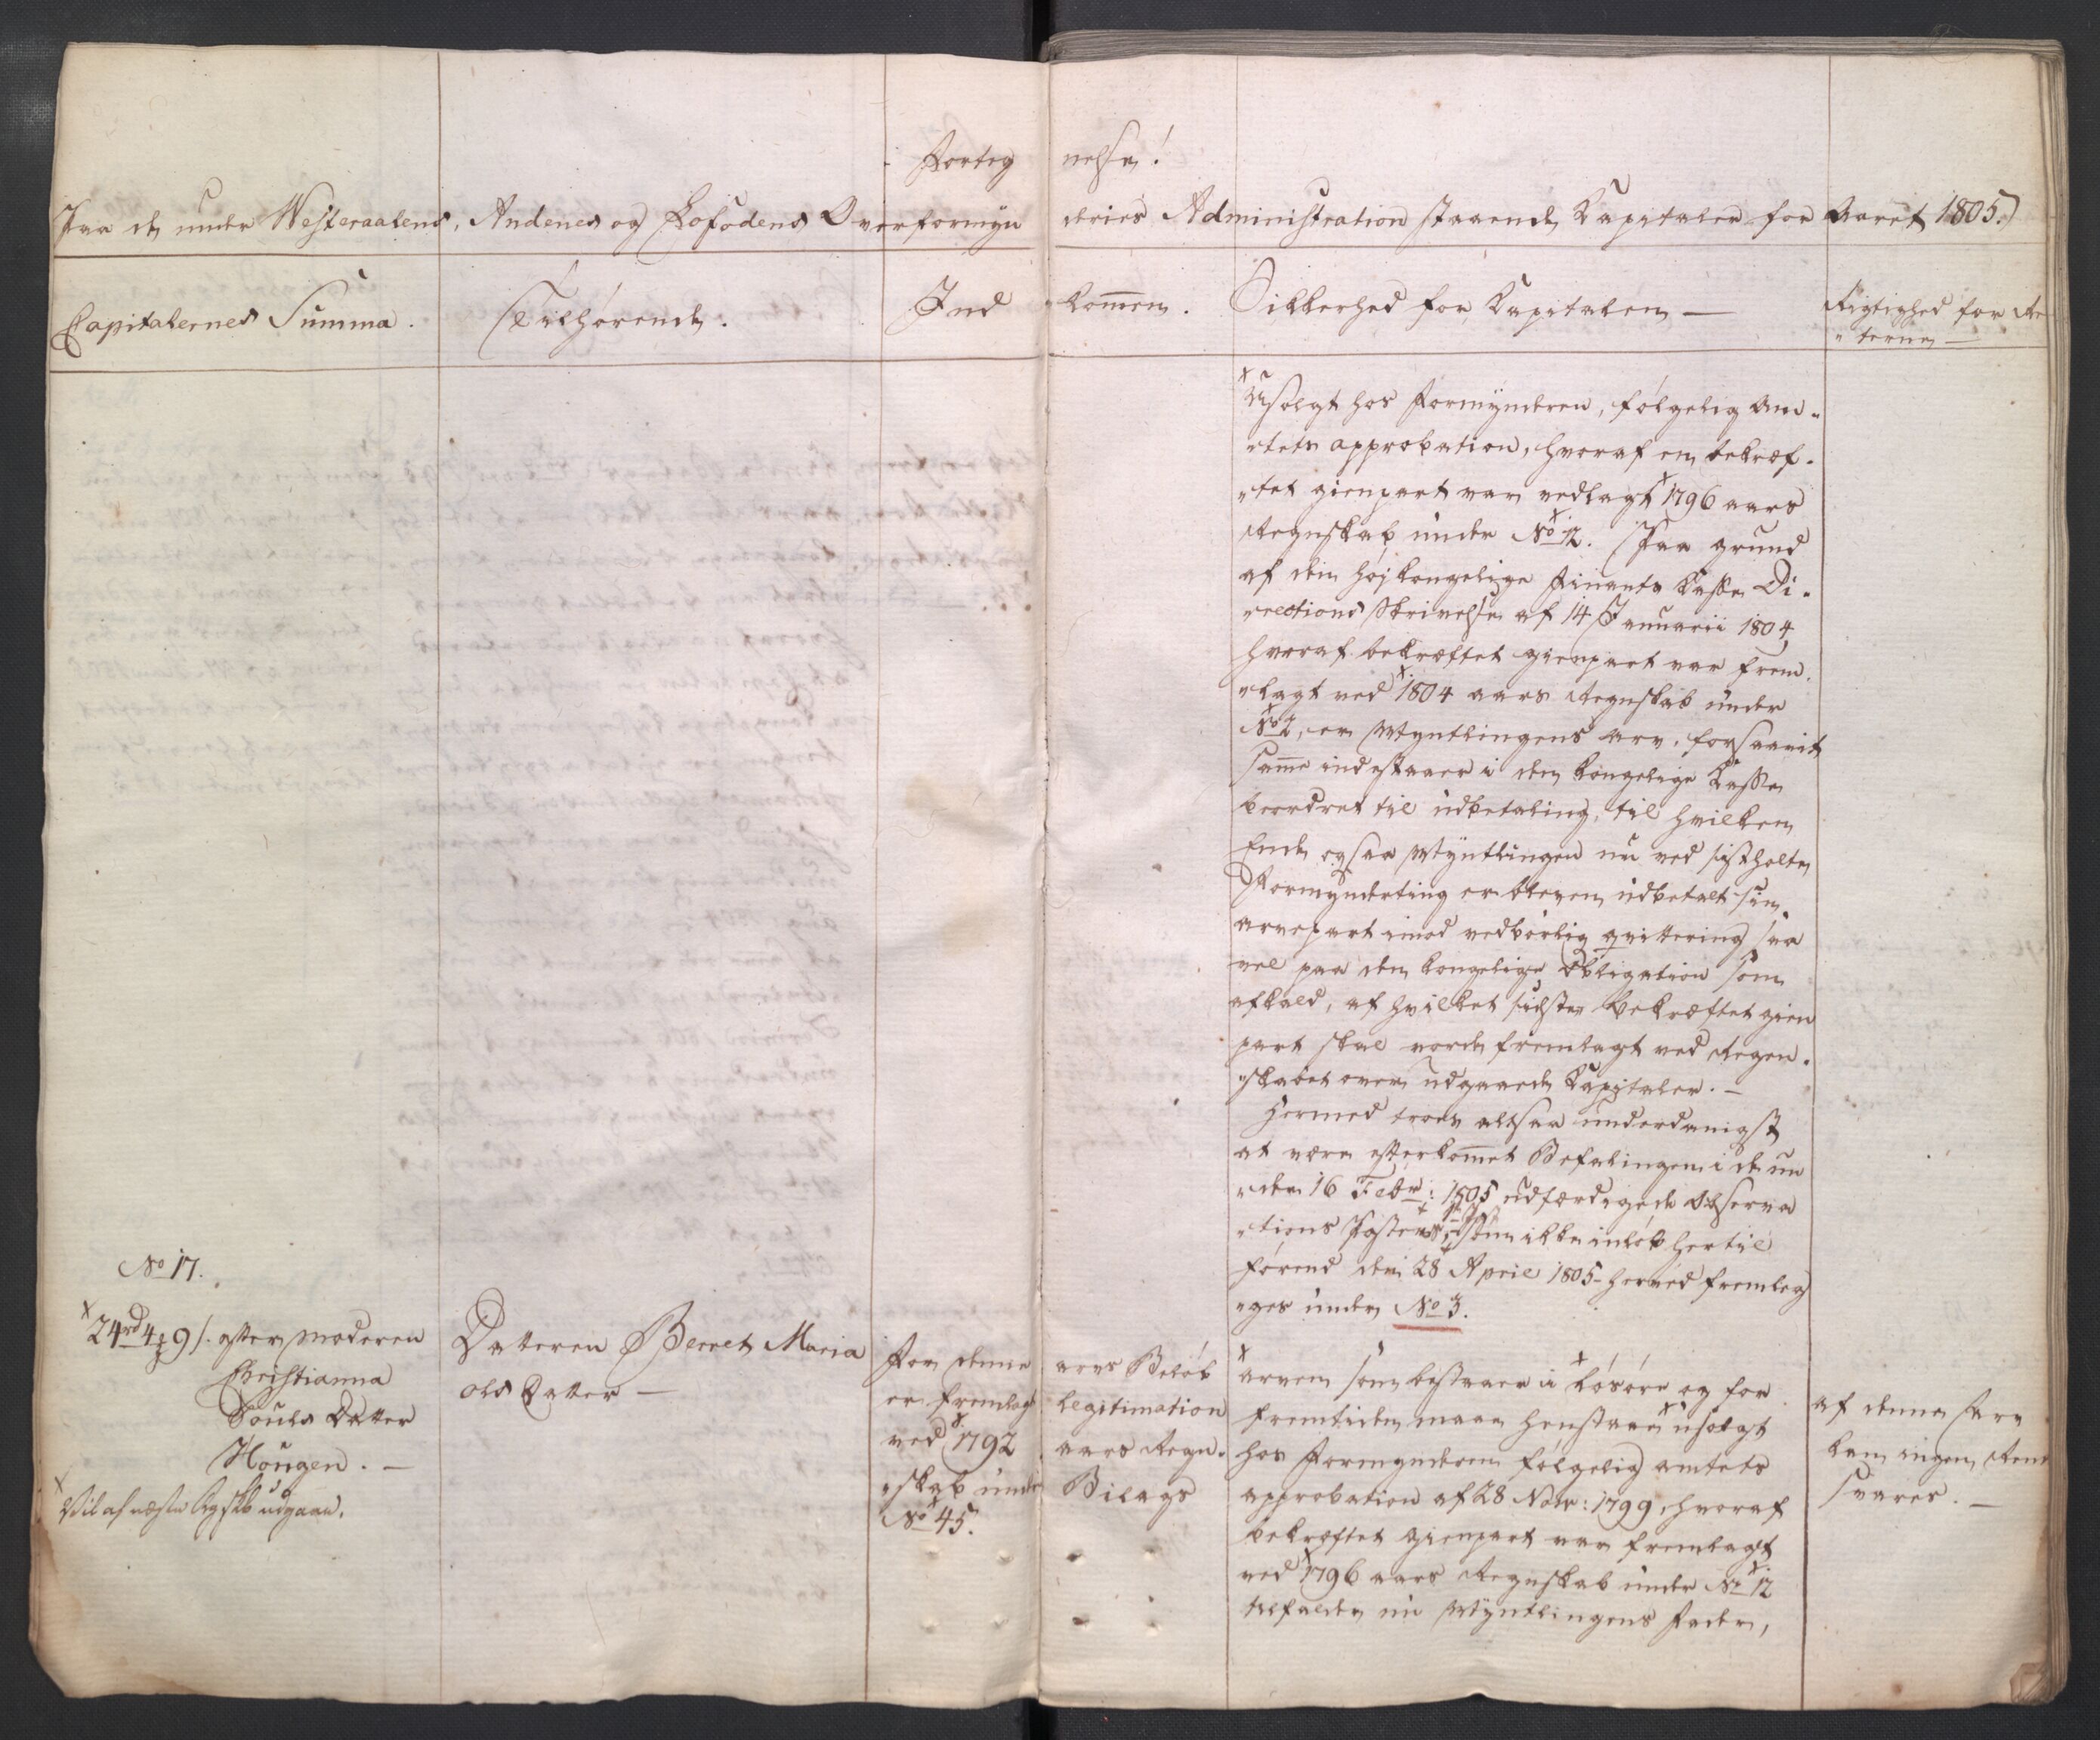 Forteg nelse!
Paa de under Westeraalens, Andenes og Lofodens Overformyn deries Administration staaende Capitaler for Aaret 1805.
Capitalernes Summa.
Tilhørende.
Ind kommen.
Sikkerhed for Capitalen —
Rigtighed for Re
"terne —
Usolgt hos Formynderen, følgelig Am-
"tets approbation, hvoraf en bekræf-
"tet gienpart var vedlagt 1796 aars
Regnskab under No 12. Paa grund
af den høj kongelige Finants Casse Di-
"rections Skrivelse af 14 Januarii 1804,
hvoraf bekræftet gienpart var frem-
"lagt ved 1804 aars Regnskab under
No 2, er Myntlingens arv, forsaavit
samme indestaaer i den kongelige Casse
beordret til udbetaling, til hvilken
Ende ogsaa Myntlingen nu ved sistholte
Formynderting er bleven udbetalt sin
arvepart imod vedbørlig qvittering saa
vel paa den kongelige Obligation som
afkald, af hvilket sidste bekræftet gien
part skal vorde fremlagt ved Regen-
"skabet over udgaaede Capitaler. —
Hermed troes altsaa underdanigst
at være efterkommet Befalingen i de un
"der 16 Febr: 1805 udfærdigede Observa
"tions Poster, som ikke indløb hertil
førend den 28 April 1805 herved fremleg
"ges under No 3.
No 17.
24 rd 4 9 s. efter moderen
Christianna
Pouls Datter
Hougen. —
Vil af næste Rgskb udgaae.
Datteren Berret Maria
Ols Datter —
For denne arvs Beløb
er fremlagt legitimation
ved 1792 aars Regn-
"skab under Bilags
No 45.
Arven som bestaaer i løsøre og for
fremtiden maae henstaae usolgt
hos Formynderen følgelig amtets
approbation af 28 Novr: 1799, hvoraf
bekræftet gienpart var fremlagt
ved 1796 aars Regnskab under No 12
tilfaldt nu Myntlingens Fader,
af denne Arv
kan ingen Rente
svares. —